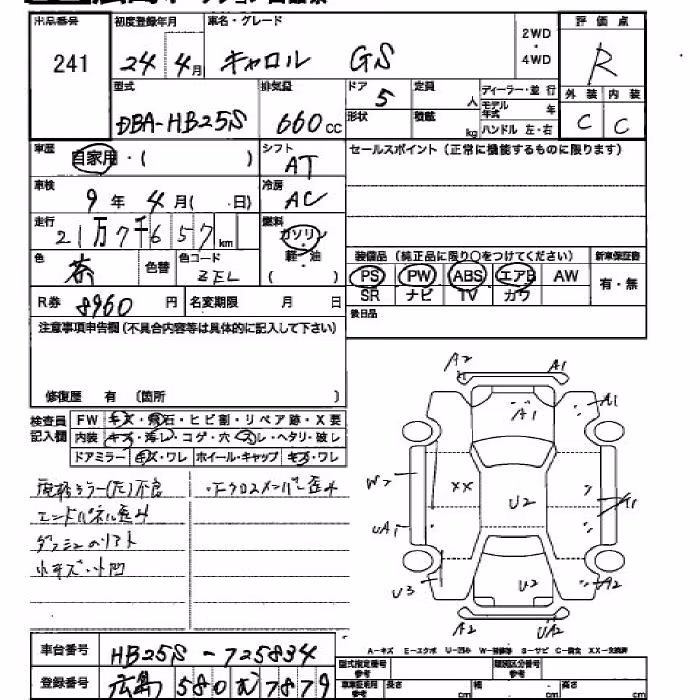 出品番号 初度登録年月 車名・グレード 2WD・4WD 評価点
241 24年 4月 キャロル GS R
型式 排気量 ドア 定員 ディーラー・並行 外装 内装
DBA-HB25S 660cc 5 人 モデル年式 年 C C
形状 積載 kg ハンドル 左・右
車歴 自家用・( ) シフト AT セールスポイント(正常に機能するものに限ります)
車検 9年 4月( 日) 冷房 AC
走行 21万7千657km 燃料 ガソリン・軽・油 ( )
装備品 (純正品に限り○をつけてください) 新車保証書
色 茶 色替 色コード ZEL
PS PW ABS エアB AW 有・無
SR ナビ TV カワ
R券 8960円 名変期限 月 日
後日品
注意事項申告欄(不具合内容等は具体的に記入して下さい)
修復歴 有 (箇所 )
検査員記入欄
FW キズ・飛石・ヒビ割・リペア跡・X要
内装 キズ・汚レ・コゲ・穴・スレ・ヘタリ・破レ
ドアミラー キズ・ワレ ホイール・キャップ キズ・ワレ
エンドパネル歪み
小キズ・小凹
A2 A1
A1 A1
W2 XX U2 A1
UA1
U3 U2 A2
A2 UA2
A-キズ E-エクボ U-凹み W-補修跡 S-サビ C-腐食 XX-交換済
車台番号 HB25S-725834
登録番号 広島 580 む 7879
型式指定番号 類別区分番号
長さ cm 幅 cm 高さ cm